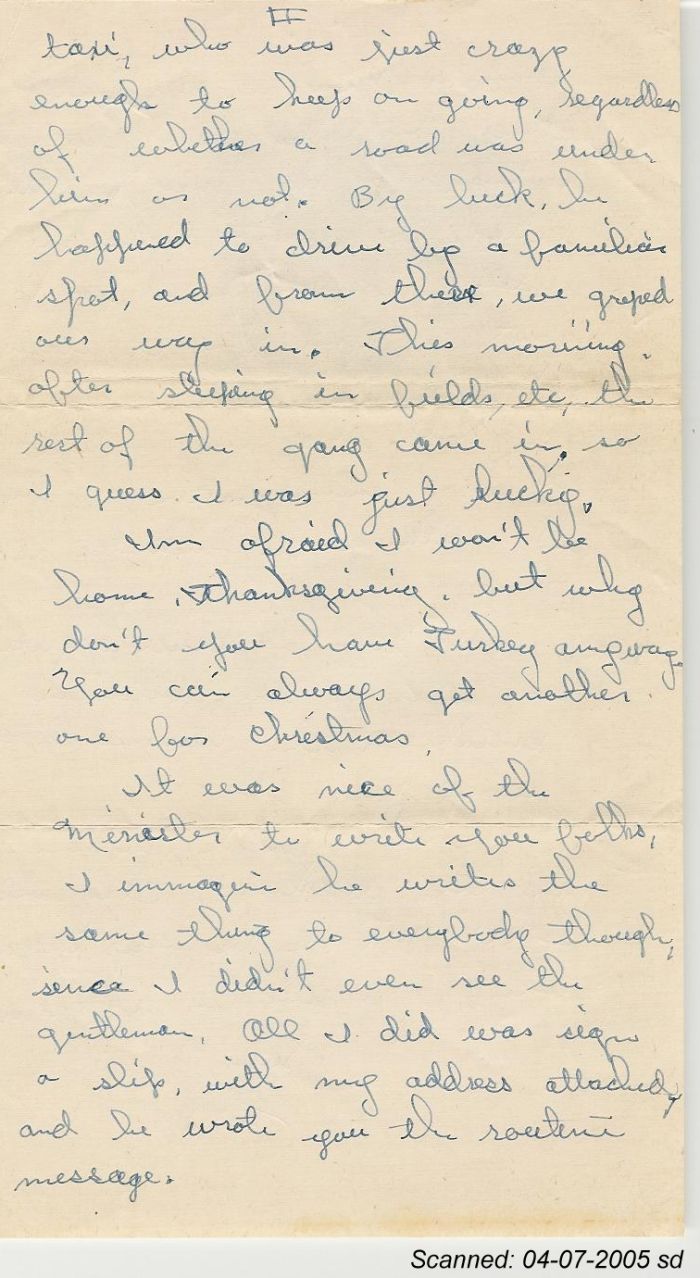 II
taxi, who was just crazy
enough to keep on going, regardless
of whether a road was under
him or not. By luck, he
happened to drive by a familiar
spot, and from there, we groped
our way in. This morning,
after sleeping in fields, etc, the
rest of the gang came in, so
I guess I was just lucky.
I'm afraid I won't be
home, Thanksgiving, but why
don't you have Turkey anyway.
You can always get another
one for Christmas.
It was nice of the
Minister to write you folks,
I immagin he writes the
same thing to everybody though,
sence I didn't even see the
gentleman. All I did was sign
a slip, with my address attached,
and he wrote you the routine
message.
Scanned: 04-07-2005 sd